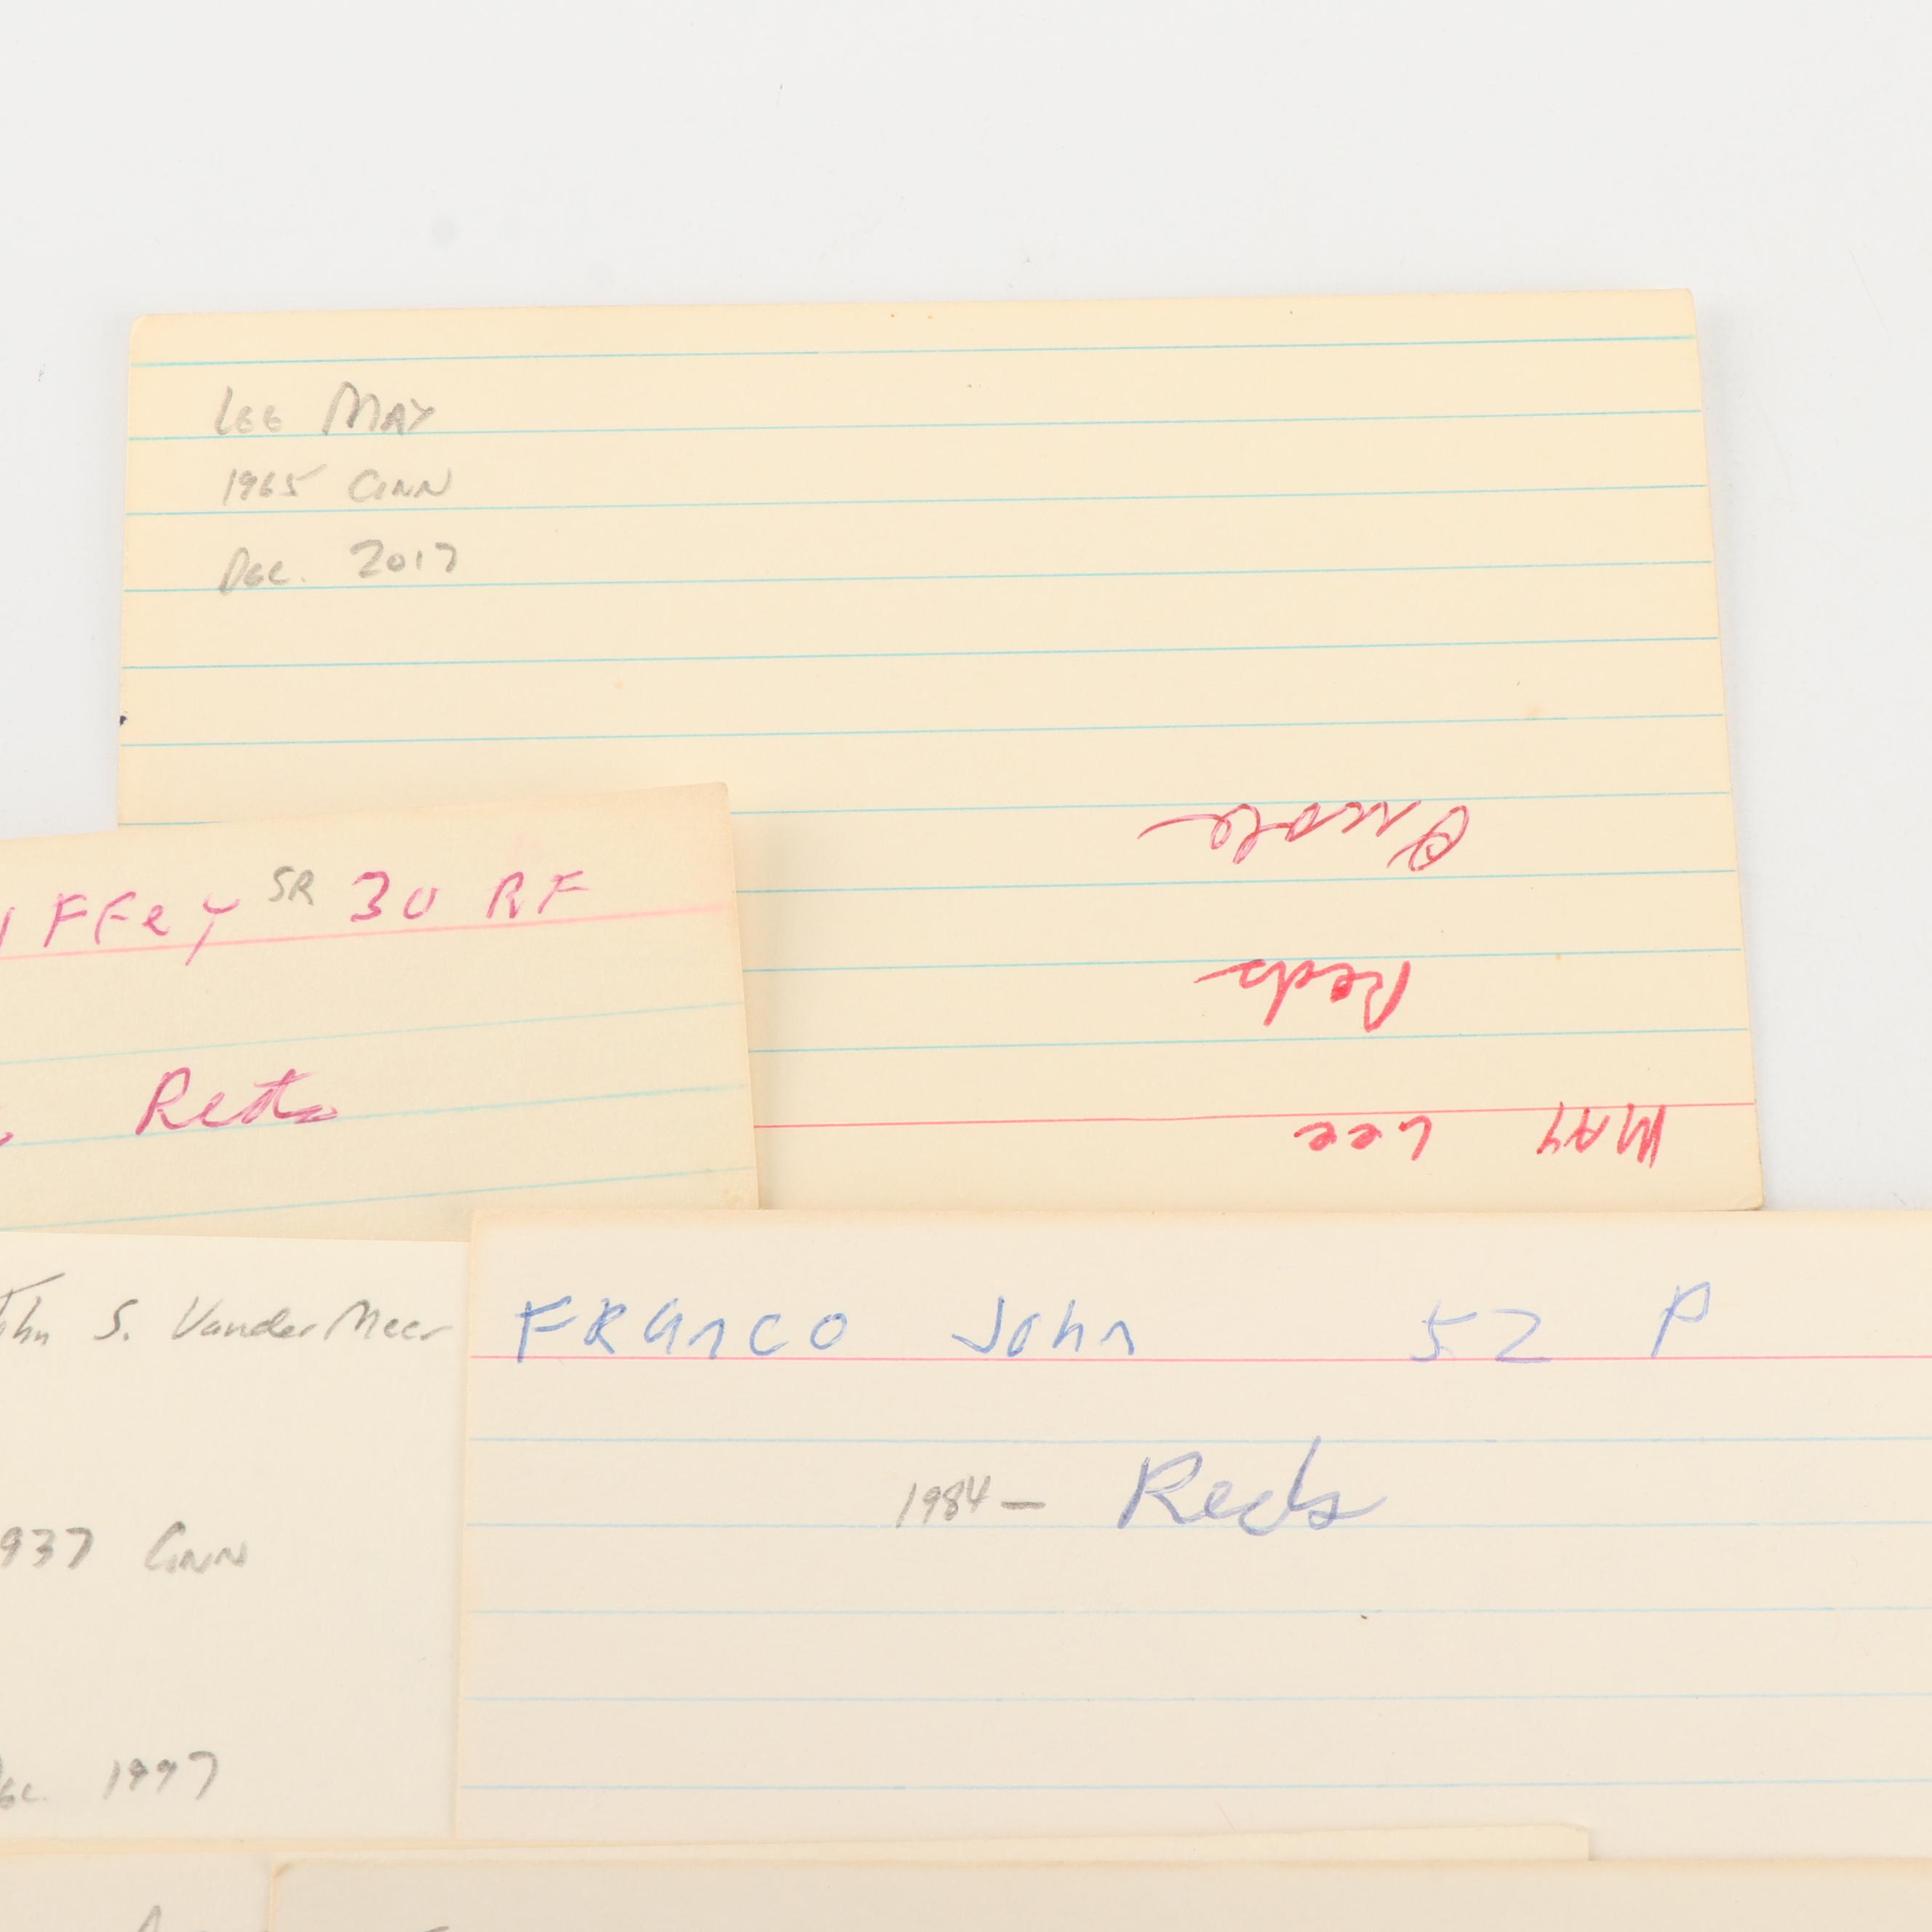 Lee May
1965 Cinn
Dec. 2017
MAY Lee
Reds
iffey SR 30 RF
Reds
John S. Vander Meer
1937 Cinn
Dec. 1997
FRANCO John 52 P
1984 — Reds